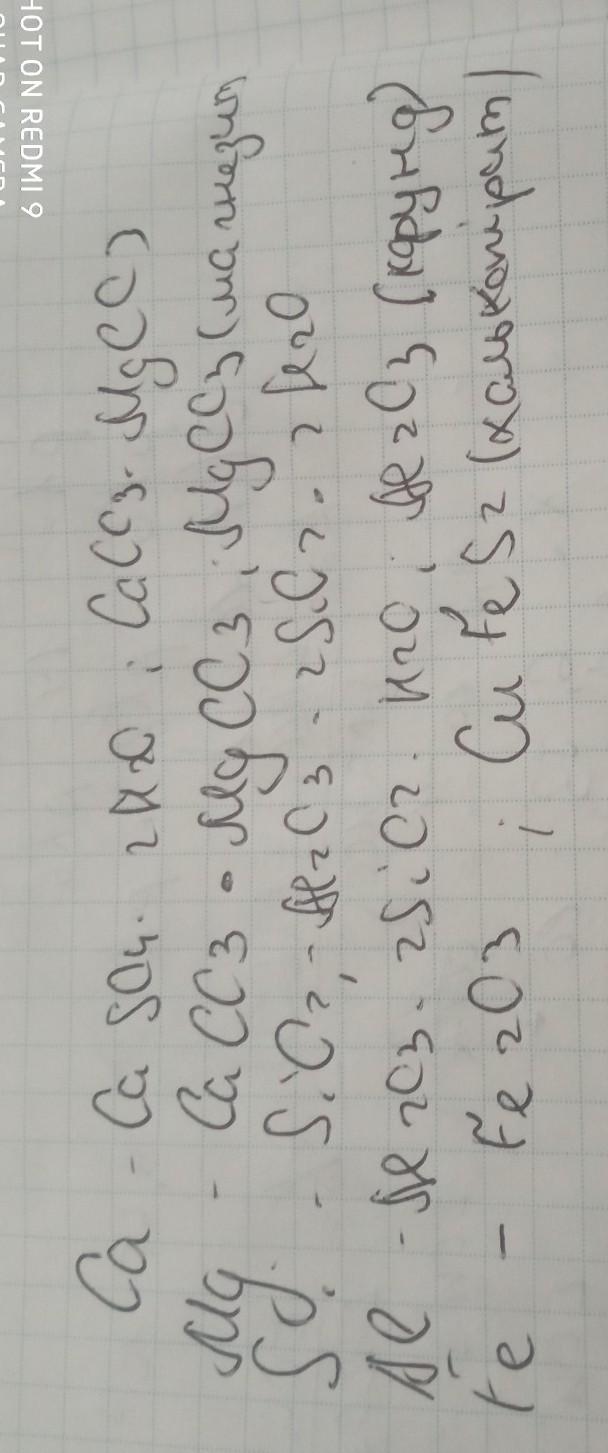 Ca - CaSO4 · 2H2O ; CaCO3 · MgCO3
Mg - CaCO3 · MgCO3 ; MgCO3 (магнезит
Si - SiO2, - Al2O3 · 2SiO2 · 2H2O
Al - Al2O3 · 2SiO2 · H2O ; Al2O3 (корунд)
Fe - Fe2O3 ; CuFeS2 (халькопирит)
SHOT ON REDMI 9